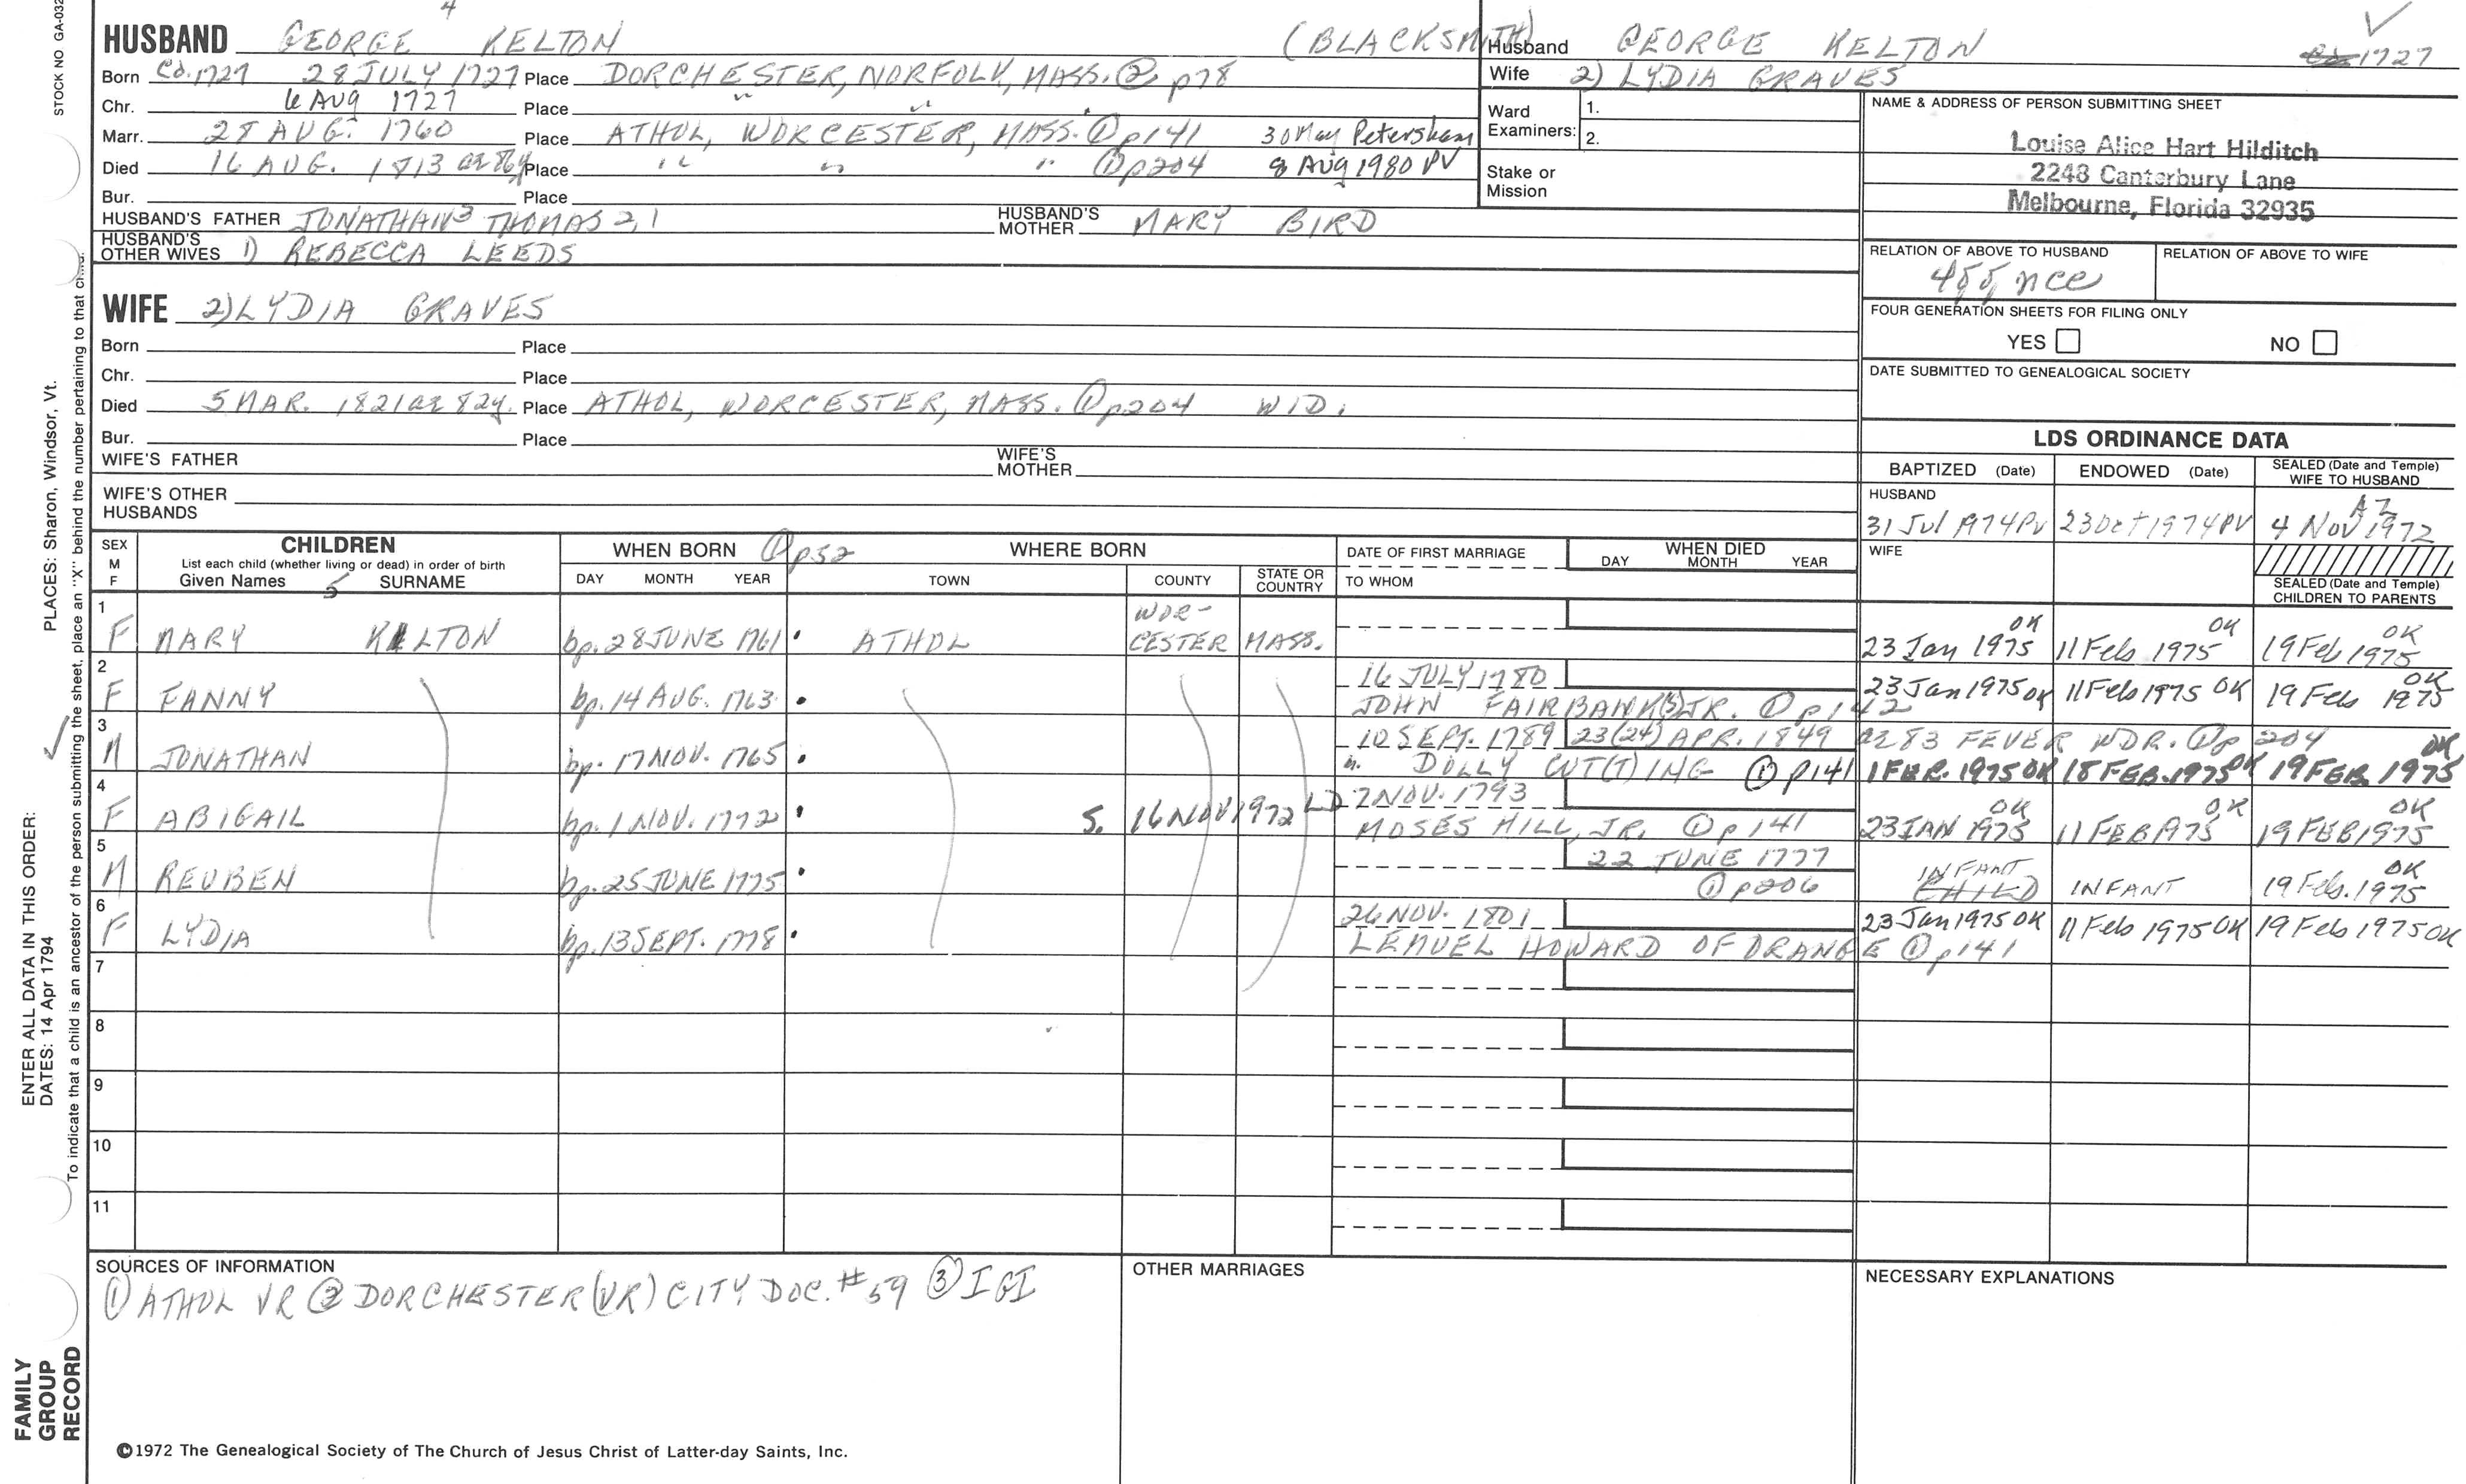 4
HUSBAND GEORGE KELTON (BLACKSMITH)
Born Cd.1727 28 JULY 1727 Place DORCHESTER, NORFOLK, MASS. ② p78
Chr. 6 AUG 1727 Place " " "
Marr. 28 AUG. 1760 Place ATHOL, WORCESTER, MASS. ① p141 30 May Petersham
Died 16 AUG. 1813 ae 86y Place " " " ① p204 8 Aug 1980 PV
Bur. Place
HUSBAND'S FATHER JONATHAN 3 THOMAS 2,1 HUSBAND'S MOTHER MARY BIRD
HUSBAND'S OTHER WIVES 1) REBECCA LEEDS
WIFE 2) LYDIA GRAVES
Born Place
Chr. Place
Died 5 MAR. 1821 ae 82y. Place ATHOL, WORCESTER, MASS. ① p204 WID.
Bur. Place
WIFE'S FATHER WIFE'S MOTHER
WIFE'S OTHER HUSBANDS
Husband GEORGE KELTON 1727
Wife 2) LYDIA GRAVES
Ward Examiners: 1.
2.
Stake or Mission
NAME & ADDRESS OF PERSON SUBMITTING SHEET
Louise Alice Hart Hilditch
2248 Canterbury Lane
Melbourne, Florida 32935
RELATION OF ABOVE TO HUSBAND RELATION OF ABOVE TO WIFE
nce
FOUR GENERATION SHEETS FOR FILING ONLY
YES NO
DATE SUBMITTED TO GENEALOGICAL SOCIETY
LDS ORDINANCE DATA
BAPTIZED (Date) ENDOWED (Date) SEALED (Date and Temple) WIFE TO HUSBAND
HUSBAND
31 Jul 1974 PV 23 Oct 1974 PV 4 Nov 1972 AZ
WIFE
SEALED (Date and Temple) CHILDREN TO PARENTS
SEX M F
CHILDREN
List each child (whether living or dead) in order of birth
Given Names 5 SURNAME
WHEN BORN ① p52 WHERE BORN
DAY MONTH YEAR TOWN COUNTY STATE OR COUNTRY
DATE OF FIRST MARRIAGE
TO WHOM
WHEN DIED
DAY MONTH YEAR
1 F MARY KELTON bp. 28 JUNE 1761 ATHOL WOR-CESTER MASS. 23 Jan 1975 OK 11 Feb 1975 OK 19 Feb 1975 OK
2 F FANNY bp. 14 AUG. 1763 16 JULY 1780 23 Jan 1975 OK 11 Feb 1975 OK 19 Feb 1975 OK
JOHN FAIRBANK(S) JR. ① p142
3 M JONATHAN bp. 17 NOV. 1765 10 SEPT. 1789 23(24) APR. 1849 ae 83 FEVER WDR. ① p204
m. DOLLY CUT(T)ING ① p141 1 FEB. 1975 OK 18 FEB. 1975 OK 19 FEB 1975 OK
4 F ABIGAIL bp. 1 NOV. 1772 S. 16 NOV 1972 LD 7 NOV. 1793
MOSES HILL, JR. ① p141 23 JAN 1975 OK 11 FEB 1975 OK 19 FEB 1975 OK
5 M REUBEN bp. 25 JUNE 1775 22 JUNE 1777 ① p206 INFANT CHILD INFANT 19 Feb. 1975 OK
6 F LYDIA bp. 13 SEPT. 1778 26 NOV. 1801 23 Jan 1975 OK 11 Feb 1975 OK 19 Feb 1975 OK
LEMUEL HOWARD OF ORANGE ① p141
7
8
9
10
11
SOURCES OF INFORMATION
① ATHOL VR ② DORCHESTER (VR) CITY DOC. #59 ③ IGI
OTHER MARRIAGES
NECESSARY EXPLANATIONS
©1972 The Genealogical Society of The Church of Jesus Christ of Latter-day Saints, Inc.
STOCK NO GA-032
PLACES: Sharon, Windsor, Vt.
ENTER ALL DATA IN THIS ORDER:
DATES: 14 Apr 1794
To indicate that a child is an ancestor of the person submitting the sheet, place an "X" behind the number pertaining to that child.
FAMILY
GROUP
RECORD